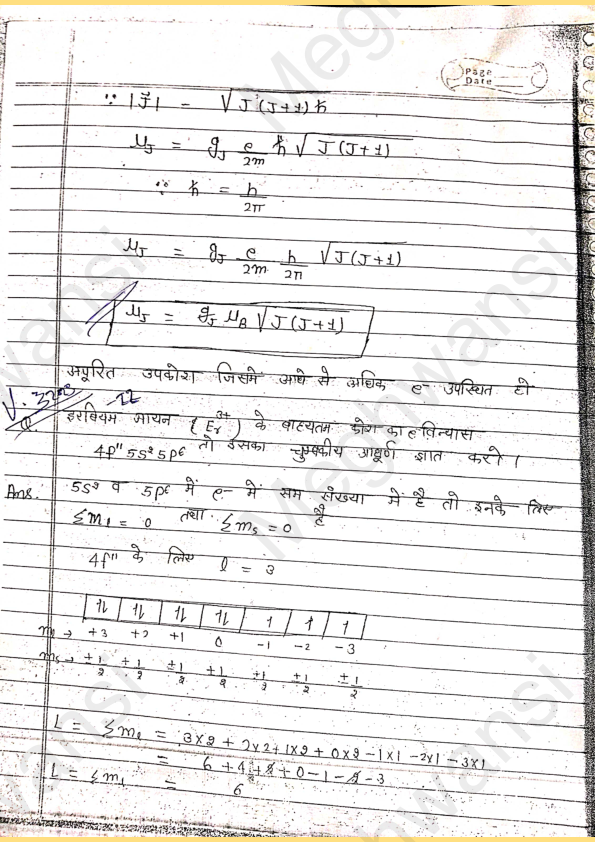 Page
Date
∵ |J⃗| = √J(J+1) ħ
μJ = gJ e/2m ħ √J(J+1)
∵ ħ = h/2π
μJ = gJ e/2m h/2π √J(J+1)
μJ = gJ μB √J(J+1)
अपूरित उपकोश जिसमे आधे से अधिक e- उपस्थित हो
Q इरबियम आयन (Er3+) के बाह्यतम कोश का e विन्यास
4f11 5s2 5p6 तो इसका चुम्बकीय आघूर्ण ज्ञात करो।
Ans. 5s2 व 5p6 में e- में सम संख्या में है तो इनके लिए
Σml = 0 तथा Σms = 0 है
4f11 के लिए l = 3
1↓ 1↓ 1↓ 1↓ 1 1 1
ml → +3 +2 +1 0 -1 -2 -3
ms → ±1/2 ±1/2 ±1/2 ±1/2 ±1/2 ±1/2 ±1/2
L = Σml = 3x2 + 2x2 + 1x2 + 0x2 - 1x1 - 2x1 - 3x1
= 6 + 4 + 2 + 0 - 1 - 2 - 3
L = Σml = 6
Meghwansi